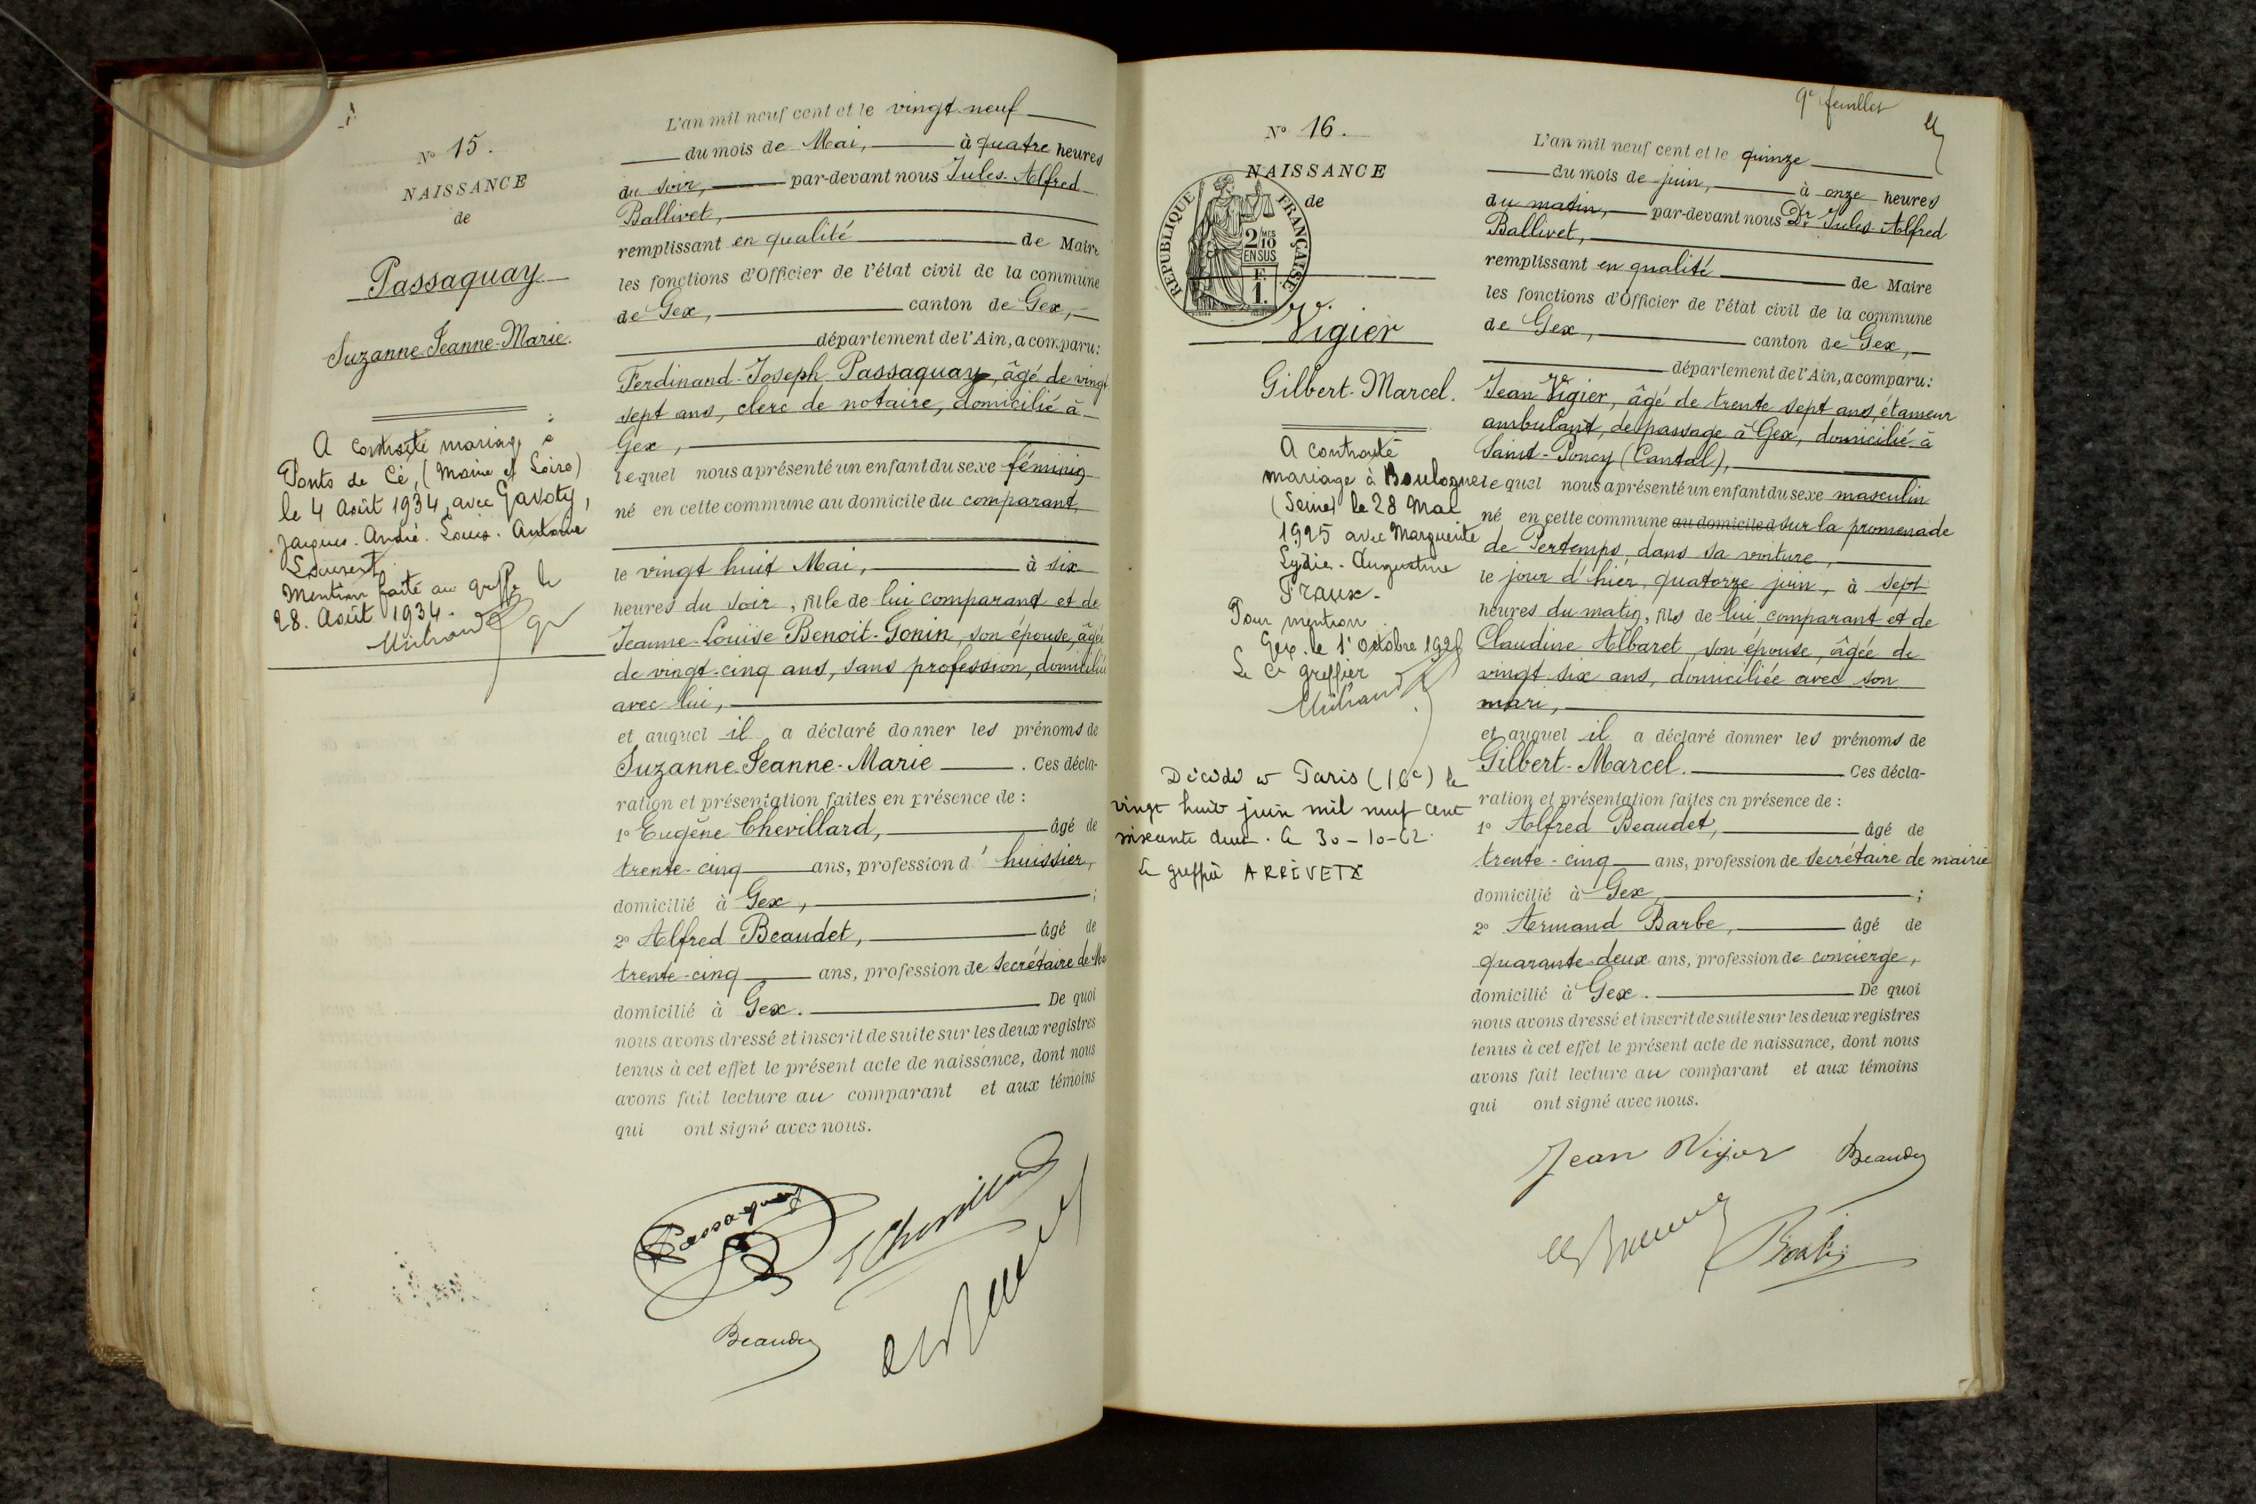 N° 15.
NAISSANCE
de
Passaquay
Suzanne-Jeanne-Marie.
A contracté mariage à
Ponts de Cé, (Maine et Loire)
le 4 Août 1934, avec Gavoty,
Jacques. André. Louis. Antoine
Laurent.
Mention faite au greffe le
28. Août 1934.
L'an mil neuf cent et le vingt-neuf
du mois de Mai, à quatre heures
du soir, par-devant nous Jules-Alfred
Ballivet,
remplissant en qualité de Maire
les fonctions d'Officier de l'état civil de la commune
de Gex, canton de Gex,
département de l'Ain, a comparu:
Ferdinand-Joseph Passaquay, âgé de vingt
sept ans, clerc de notaire, domicilié à
Gex,
lequel nous a présenté un enfant du sexe féminin
né en cette commune au domicile du comparant,
le vingt huit Mai, à six
heures du soir, fille de lui comparant et de
Jeanne-Louise Benoit-Gonin, son épouse, âgée
de vingt-cinq ans, sans profession, domiciliée
avec lui,
et auquel il a déclaré donner les prénoms de
Suzanne-Jeanne-Marie. Ces décla-
ration et présentation faites en présence de :
1° Eugène Chevillard, âgé de
trente-cinq ans, profession d'huissier,
domicilié à Gex, ;
2° Alfred Beaudet, âgé de
trente-cinq ans, profession de secrétaire de
domicilié à Gex. De quoi
nous avons dressé et inscrit de suite sur les deux registres
tenus à cet effet le présent acte de naissance, dont nous
avons fait lecture au comparant et aux témoins
qui ont signé avec nous.
Passaquay
E Chevillard
Beaudet
9e feuillet
N° 16.
NAISSANCE
de
REPUBLIQUE FRANÇAISE
2/10 MES
EN SUS
F.
1.
Vigier
Gilbert-Marcel.
A contracté
mariage à Boulogne
(Seine) le 28 Mai
1925 avec Marguerite
Lydie-Augustine
Fraux-
Pour mention
Gex. le 1er Octobre 192
Le Cs greffier
Décédé à Paris (16e) le
vingt huit juin mil neuf cent
soixante deux. Le 30-10-62.
Le greffier ARRIVETX
L'an mil neuf cent et le quinze
du mois de juin, à onze heures
du matin, par-devant nous Dr Jules-Alfred
Ballivet,
remplissant en qualité de Maire
les fonctions d'Officier de l'état civil de la commune
de Gex, canton de Gex,
département de l'Ain, a comparu:
Jean Vigier, âgé de trente sept ans, étameur
ambulant, de passage à Gex, domicilié à
Saint-Poncy (Cantal),
lequel nous a présenté un enfant du sexe masculin
né en cette commune au domicile d sur la promenade
de Pertemps, dans sa voiture,
le jour d'hier, quatorze juin, à sept
heures du matin, fils de lui comparant et de
Claudine Albaret, son épouse, âgée de
vingt six ans, domiciliée avec son
mari,
et auquel il a déclaré donner les prénoms de
Gilbert-Marcel. Ces décla-
ration et présentation faites en présence de :
1° Alfred Beaudet, âgé de
trente-cinq ans, profession de secrétaire de mairie
domicilié à Gex, ;
2° Armand Barbe, âgé de
quarante-deux ans, profession de concierge,
domicilié à Gex. De quoi
nous avons dressé et inscrit de suite sur les deux registres
tenus à cet effet le présent acte de naissance, dont nous
avons fait lecture au comparant et aux témoins
qui ont signé avec nous.
Jean Vijer Beaudet